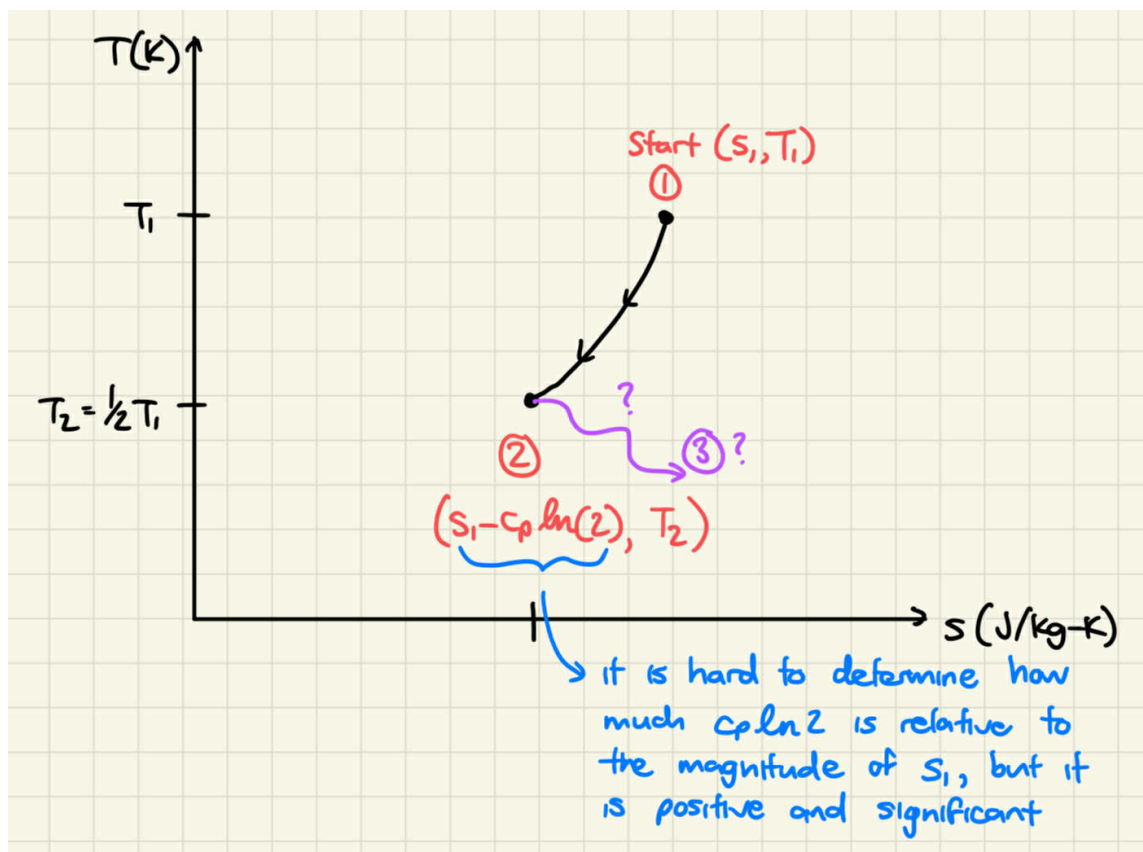 T(K)
Start (s₁,T₁)
①
T₁
T₂=½T₁
?
②
③?
(s₁-cp ln(2), T₂)
s(J/kg-K)
it is hard to determine how
much cp ln2 is relative to
the magnitude of s₁, but it
is positive and significant